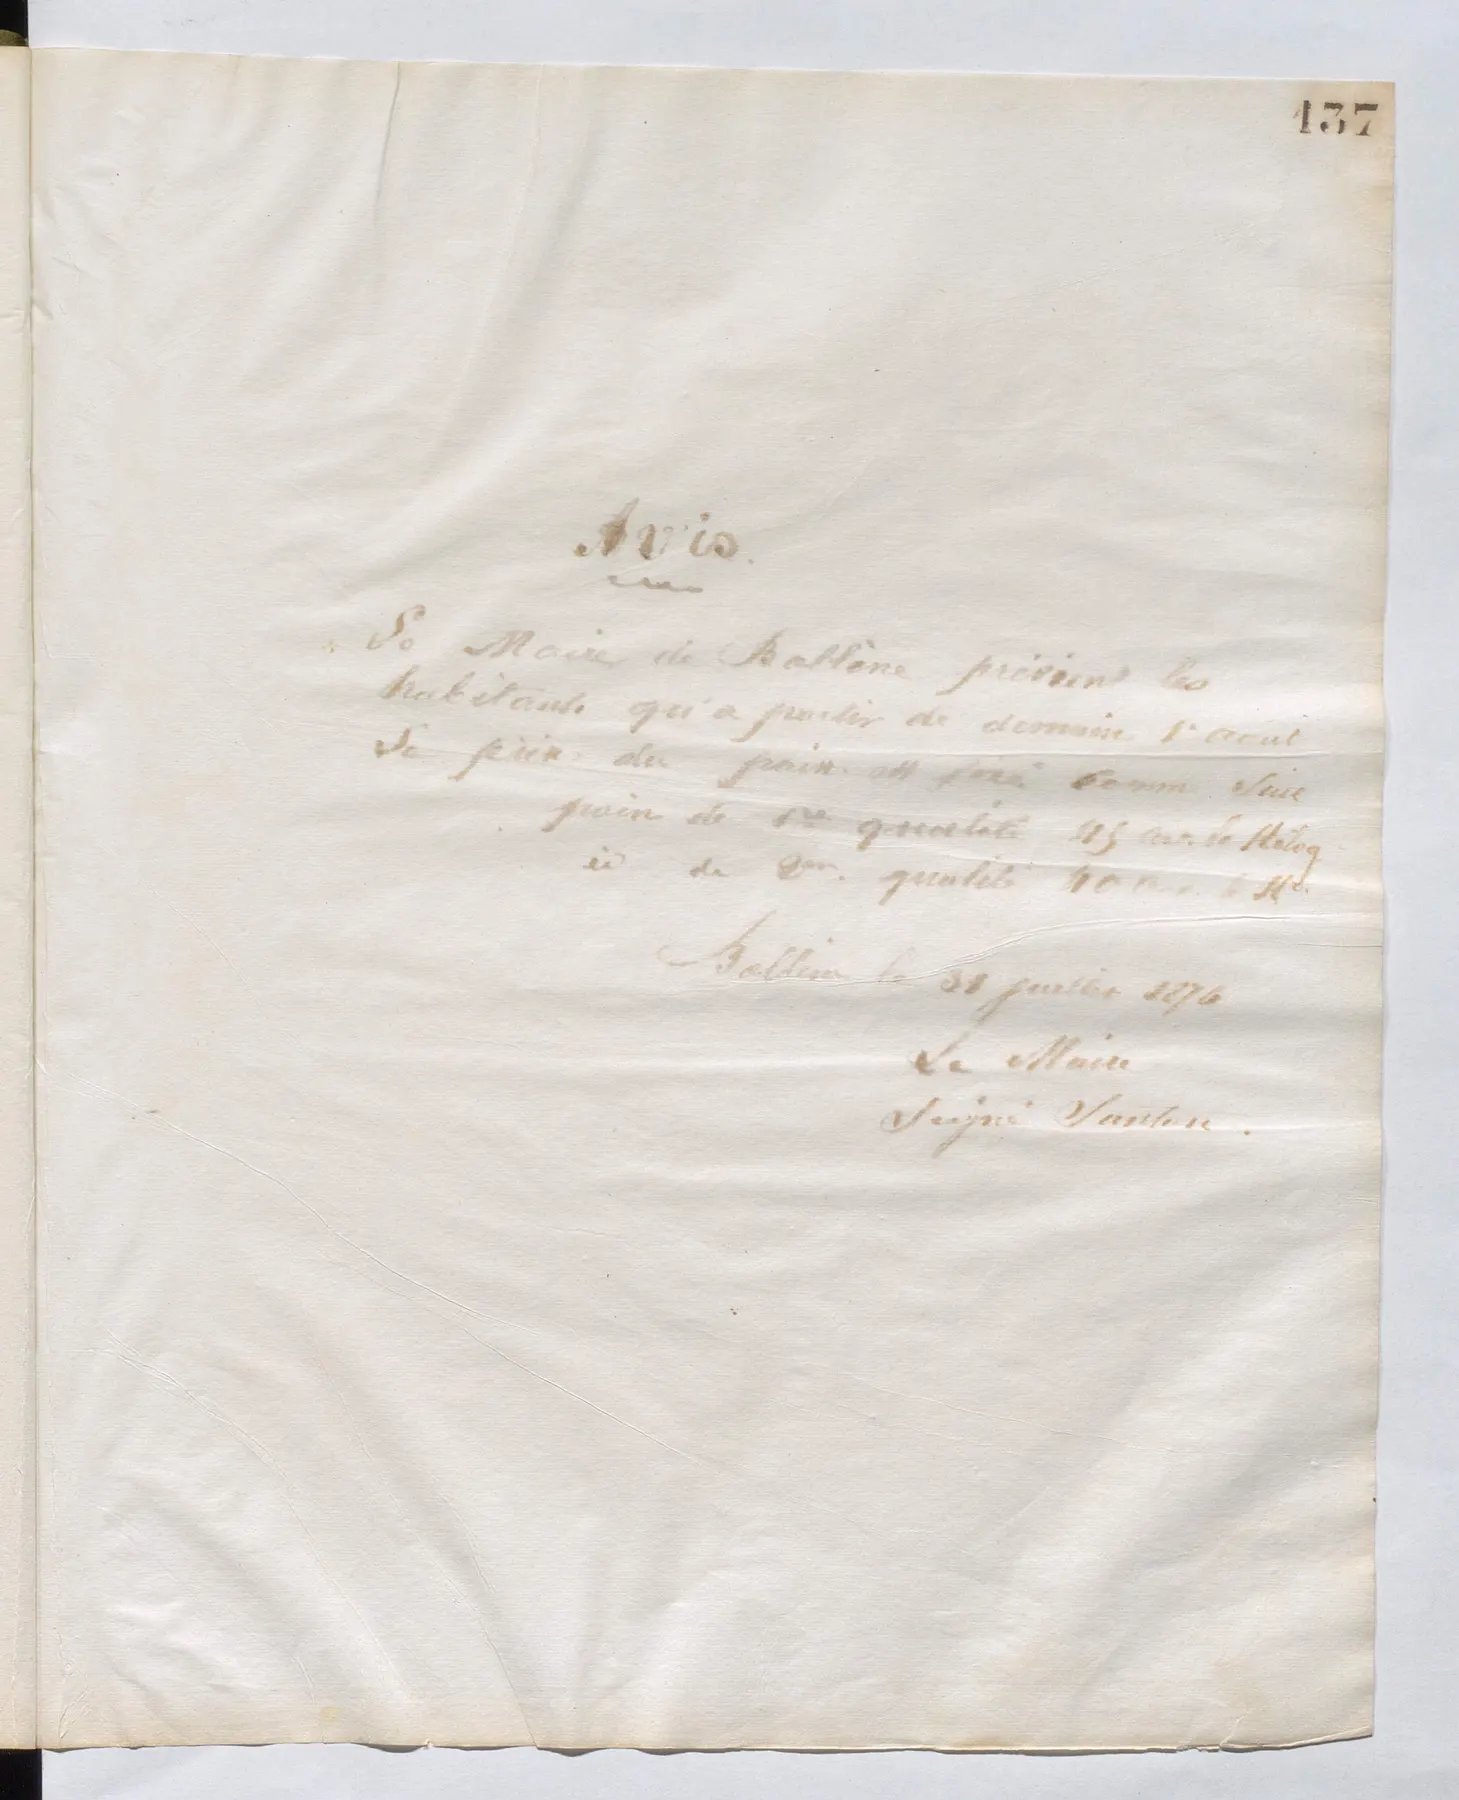 137
Avis.
Le Maire de Bollène prévient les
habitants qu'a partir de demain 1er aout
Le prix du pain est fixé comme suit
pain de 1re qualité 45 le Kilog
id de 2me qualité 40 le Ko.
Bollène le 31 juillet 1876
Le Maire
Signé